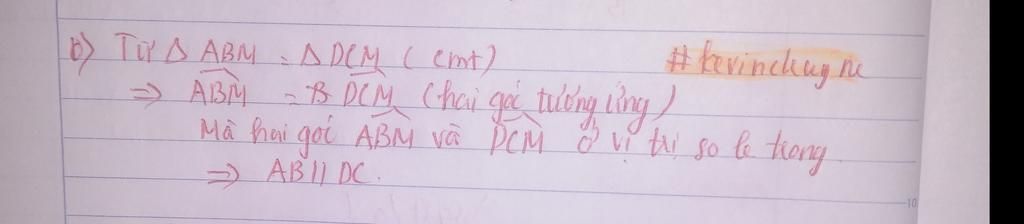 b) Từ Δ ABM = Δ DCM ( cmt)
#kevinchug nè
⇒ ABM = DCM (hai góc tương ứng)
Mà hai góc ABM và DCM ở vị trí so le trong
⇒ AB // DC.
10